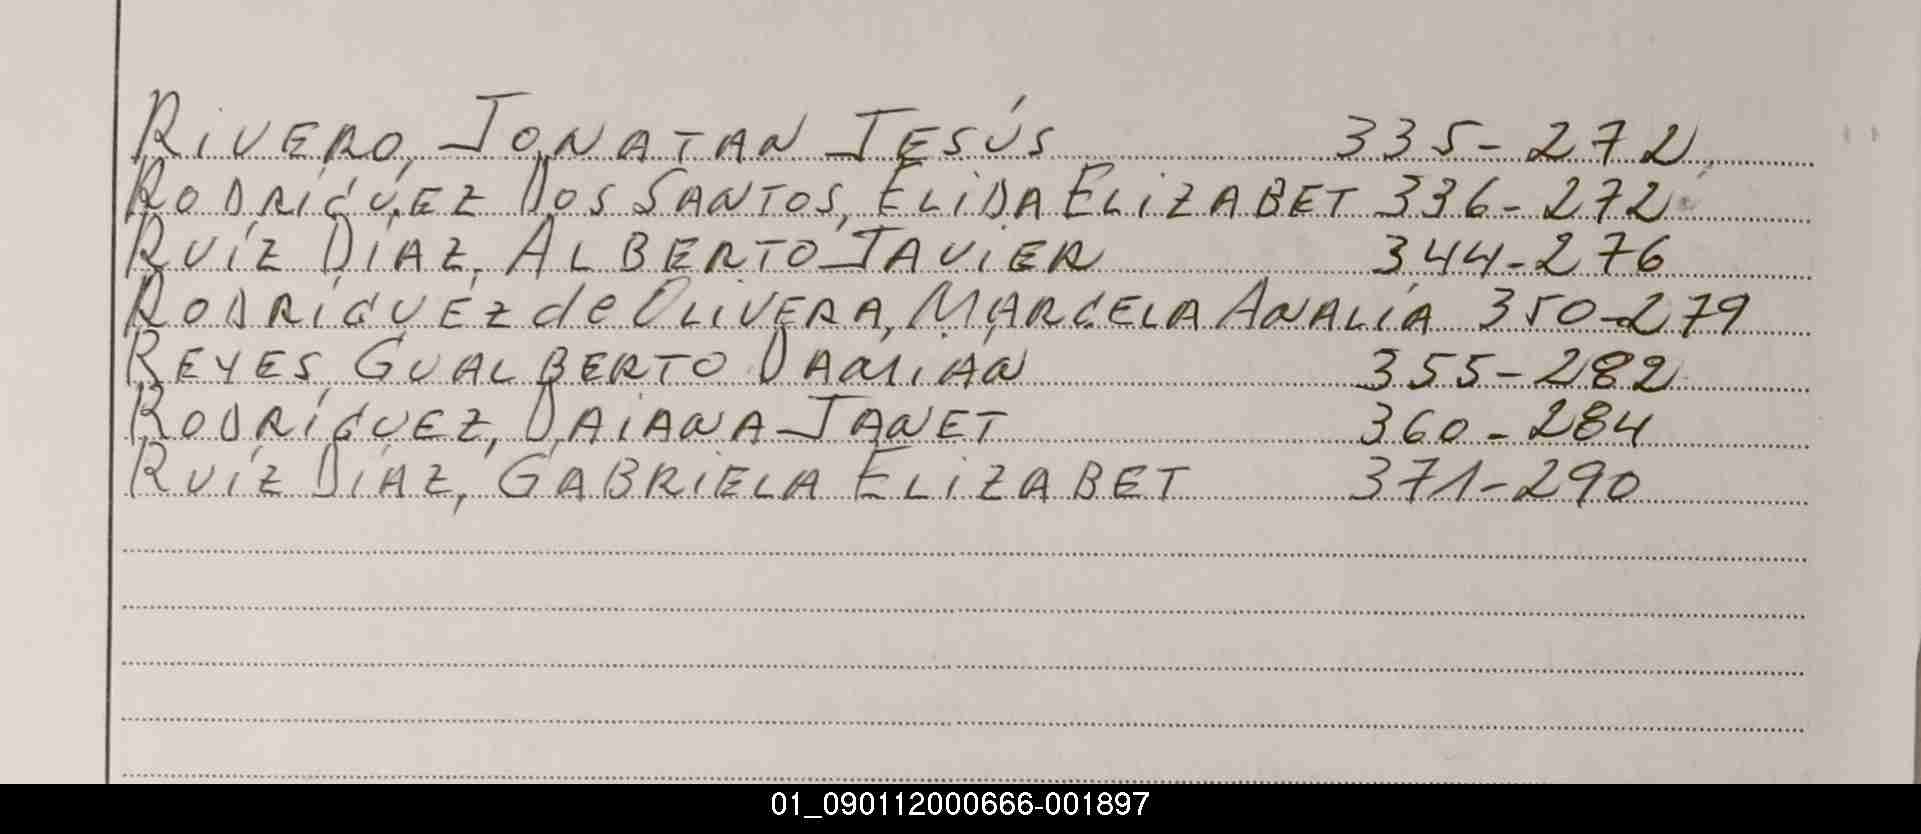 RIVERO, JONATAN JESÚS 335-272
RODRÍGUEZ DOS SANTOS, ELIDA ELIZABET 336-272
RUÍZ DÍAZ, ALBERTO JAVIER 344-276
RODRÍGUEZ de OLIVERA, MARCELA ANALÍA 350-279
REYES, GUALBERTO DAMIÁN 355-282
RODRÍGUEZ, DAIANA JANET 360-284
RUÍZ DÍAZ, GABRIELA ELIZABET 371-290
01_090112000666-001897